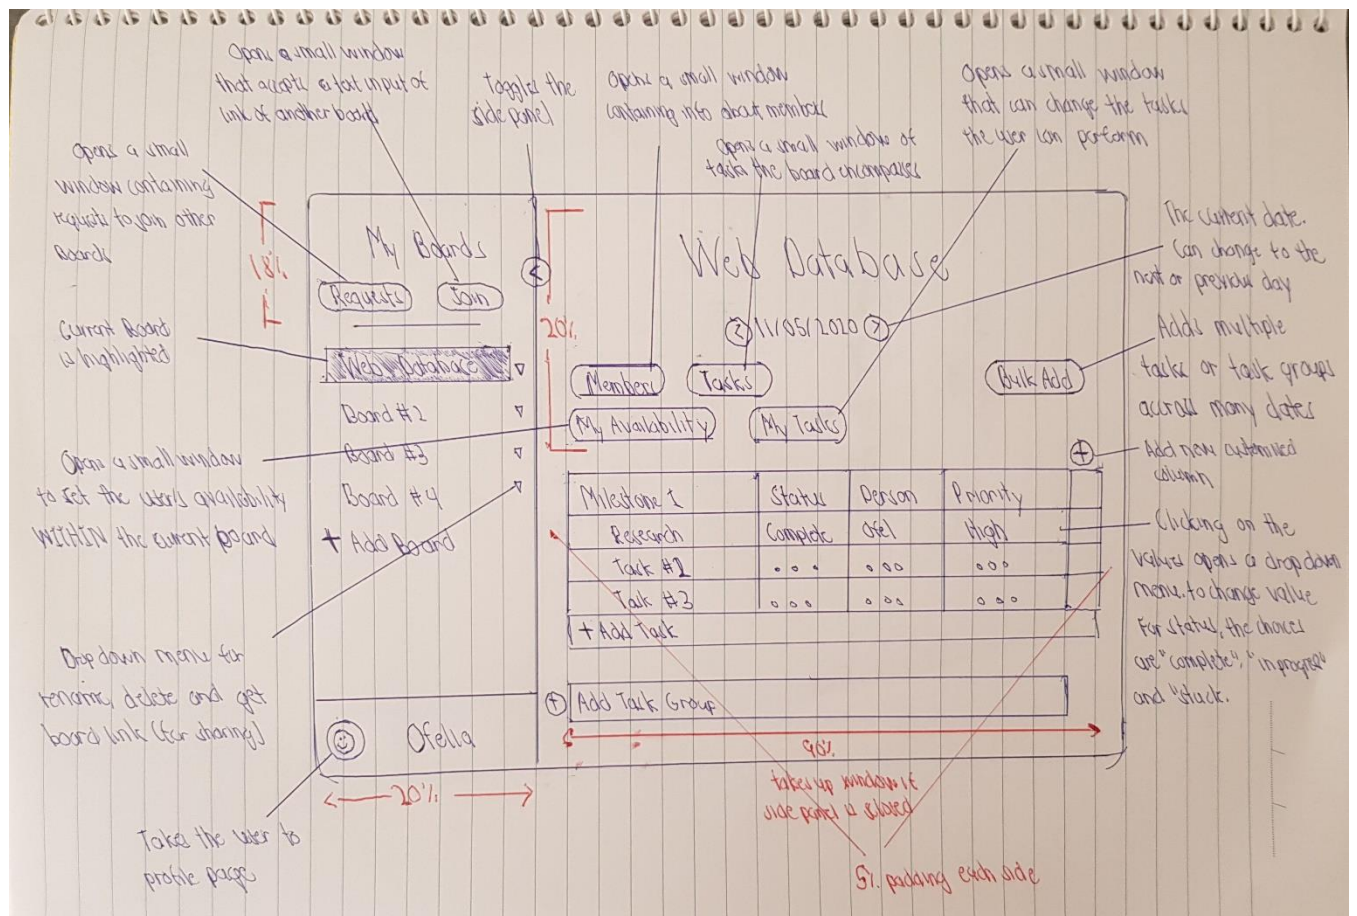 Opens a small window
that accepts a text input of
link of another board
Toggles the
side panel
Opens a small window
containing info about members
Opens a small window of
tasks the board encompasses
Opens a small window
that can change the tasks
the user can perform
Opens a small
window containing
requests to join other
Boards
Current Board
is highlighted
Opens a small window
to set the user's availability
WITHIN the current board
Drop down menu for
rename, delete and get
board link (for sharing)
Takes the user to
profile page
18%
My Boards
Requests
Join
Web Database
Board #2
Board #3
Board #4
+ Add Board
Ofella
20%
<
20%
Web Database
< 11/05/2020 >
Members
Tasks
Bulk Add
My Availability
My Tasks
+
Milestone 1 Status Person Priority
Research Complete Ofel High
Task #2
Task #3
+ Add Task
+ Add Task Group
90%
takes up window if
side panel is closed
5% padding each side
The current date.
Can change to the
next or previous day
Adds multiple
tasks or task groups
accross many dates
Add new customised
column
Clicking on the
values opens a drop down
menu to change value
For status, the choices
are "complete", "in progress"
and "stuck.